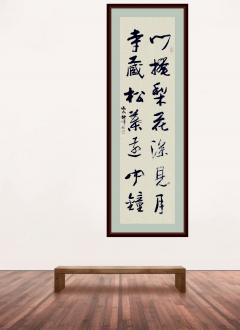 门掩梨花深见月
寺藏松叶远闻钟